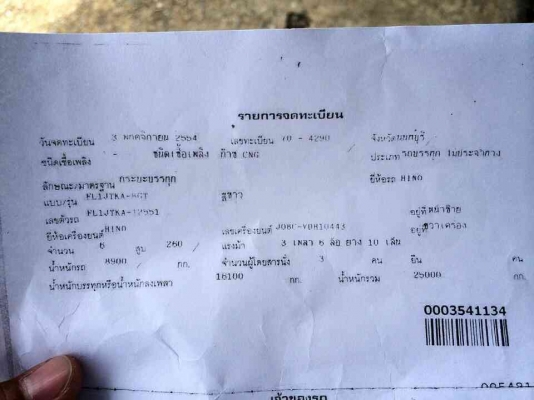 รายการจดทะเบียน
วันจดทะเบียน 3 พฤศจิกายน 2554 เลขทะเบียน 70 - 4290 จังหวัดนนทบุรี
ชนิดเชื้อเพลิง - ชนิดเชื้อเพลิง ก๊าซ CNG ประเภท รถบรรทุก ไม่ประจำทาง
ลักษณะ/มาตรฐาน กระบะบรรทุก ยี่ห้อรถ HINO
แบบ/รุ่น FL1JTKA- สี ขาว
เลขตัวรถ FL1JTKA- อยู่ที่ หน้าซ้าย
ยี่ห้อเครื่องยนต์ HINO เลขเครื่องยนต์ J08C-VDH10443 อยู่ที่ ขวาเครื่อง
จำนวน 6 สูบ 260 แรงม้า 3 เพลา 6 ล้อ ยาง 10 เส้น
น้ำหนักรถ 8900 กก. จำนวนผู้โดยสารนั่ง 3 คน ยืน คน
น้ำหนักบรรทุกหรือน้ำหนักลงเพลา 16100 กก. น้ำหนักรวม 25000 กก.
0003541134
เจ้าของรถ